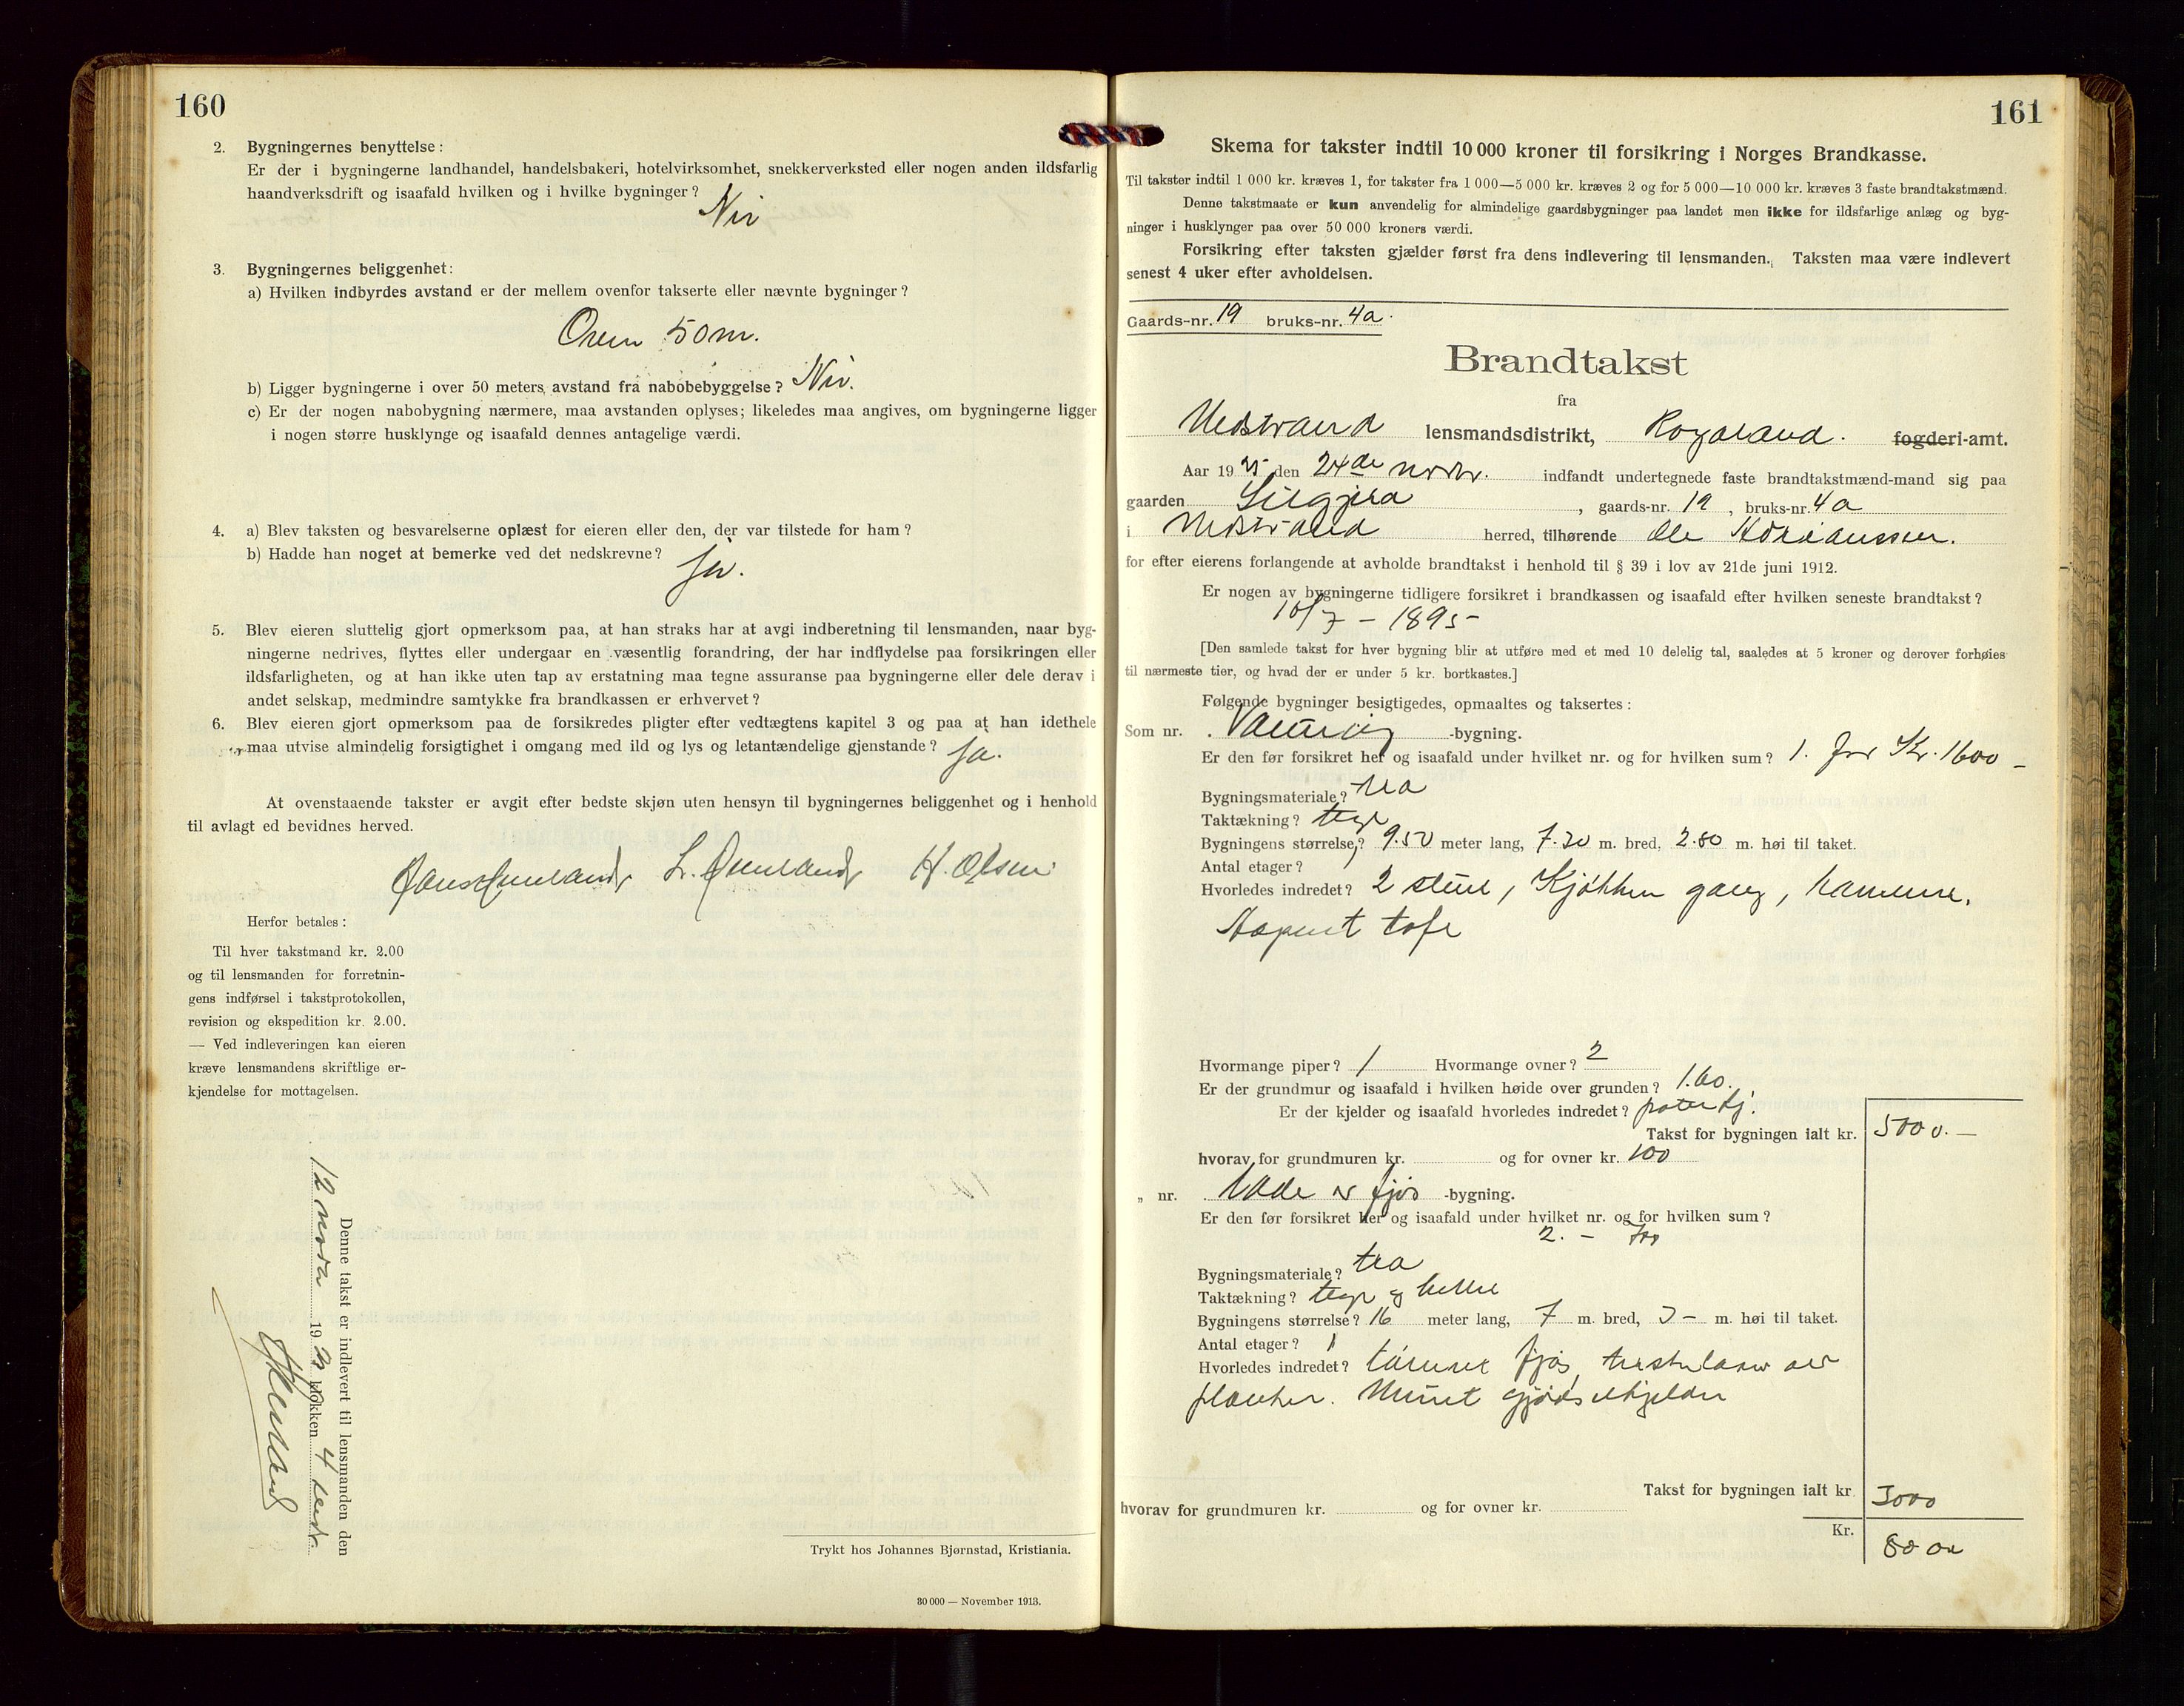 160
2. Bygningernes benyttelse:
Er der i bygningerne landhandel, handelsbakeri, hotelvirksomhet, snekkerverksted eller nogen anden ildsfarlig
haandverksdrift og isaafald hvilken og i hvilke bygninger? Nei
3. Bygningernes beliggenhet:
a) Hvilken indbyrdes avstand er der mellem ovenfor takserte eller nævnte bygninger?
Over 50 m.
b) Ligger bygningerne i over 50 meters avstand fra nabobebyggelse? Nei.
c) Er der nogen nabobygning nærmere, maa avstanden oplyses; likeledes maa angives, om bygningerne ligger
i nogen større husklynge og isaafald dennes antagelige værdi.
4. a) Blev taksten og besvarelserne oplæst for eieren eller den, der var tilstede for ham?
b) Hadde han noget at bemerke ved det nedskrevne? Ja.
5. Blev eieren sluttelig gjort opmerksom paa, at han straks har at avgi indberetning til lensmanden, naar byg-
ningerne nedrives, flyttes eller undergaar en væsentlig forandring, der har indflydelse paa forsikringen eller
ildsfarligheten, og at han ikke uten tap av erstatning maa tegne assuranse paa bygningerne eller dele derav i
andet selskap, medmindre samtykke fra brandkassen er erhvervet?
6. Blev eieren gjort opmerksom paa de forsikredes pligter efter vedtægtens kapitel 3 og paa at han idethele
maa utvise almindelig forsigtighet i omgang med ild og lys og letantændelige gjenstande? Ja.
At ovenstaaende takster er avgit efter bedste skjøn uten hensyn til bygningernes beliggenhet og i henhold
til avlagt ed bevidnes herved.
H. Olsen
Herfor betales:
Til hver takstmand kr. 2.00
og til lensmanden for forretnin-
gens indførsel i takstprotokollen,
revision og ekspedition kr. 2.00.
— Ved indleveringen kan eieren
kræve lensmandens skriftlige er-
kjendelse for mottagelsen.
Denne takst er indlevert til lensmanden den
12 novbr 19 klokken 4
Trykt hos Johannes Bjørnstad, Kristiania.
30 000 — November 1913.
161
Skema for takster indtil 10 000 kroner til forsikring i Norges Brandkasse.
Til takster indtil 1 000 kr. kræves 1, for takster fra 1 000—5 000 kr. kræves 2 og for 5 000—10 000 kr. kræves 3 faste brandtakstmænd.
Denne takstmaate er kun anvendelig for almindelige gaardsbygninger paa landet men ikke for ildsfarlige anlæg og byg-
ninger i husklynger paa over 50 000 kroners værdi.
Forsikring efter taksten gjælder først fra dens indlevering til lensmanden. Taksten maa være indlevert
senest 4 uker efter avholdelsen.
Gaards-nr. 19 bruks-nr. 4a.
Brandtakst
fra
Nedstrand lensmandsdistrikt, Rogaland. fogderi-amt.
Aar 19 25 den 24de novbr. indfandt undertegnede faste brandtakstmænd-mand sig paa
gaarden , gaards-nr. 19 , bruks-nr. 4a
i Nedstrand herred, tilhørende Ole Adrianssen.
for efter eierens forlangende at avholde brandtakst i henhold til § 39 i lov av 21de juni 1912.
Er nogen av bygningerne tidligere forsikret i brandkassen og isaafald efter hvilken seneste brandtakst?
10/7 - 1895-
[Den samlede takst for hver bygning blir at utføre med et med 10 delelig tal, saaledes at 5 kroner og derover forhøies
til nærmeste tier, og hvad der er under 5 kr. bortkastes.]
Følgende bygninger besigtigedes, opmaaltes og taksertes:
Som nr. . Vaanings -bygning.
Er den før forsikret her og isaafald under hvilket nr. og for hvilken sum? 1. for Kr. 1600 -
Bygningsmateriale? træ
Taktækning? tegl
Bygningens størrelse? 9.50 meter lang, 7.30 m. bred, 2.80 m. høi til taket.
Antal etager? 1
Hvorledes indredet? 2 stuer, Kjøkken gang, kammer.
Hvormange piper? 1 Hvormange ovner? 2
Er der grundmur og isaafald i hvilken høide over grunden? 1.60.
Er der kjelder og isaafald hvorledes indredet? potetkj.
Takst for bygningen ialt kr. 5000.—
hvorav for grundmuren kr. og for ovner kr. 100
„ nr. . Lade og fjøs -bygning.
Er den før forsikret her og isaafald under hvilket nr. og for hvilken sum?
2. -
Bygningsmateriale? træ
Taktækning? tegl og heller
Bygningens størrelse? 16 meter lang, 7 m. bred, 3 - m. høi til taket.
Antal etager? 1
Hvorledes indredet? tømmer fjøs, av
planker. Muret gjødselkjelder
Takst for bygningen ialt kr. 3000
hvorav for grundmuren kr. og for ovner kr.
Kr. 8000